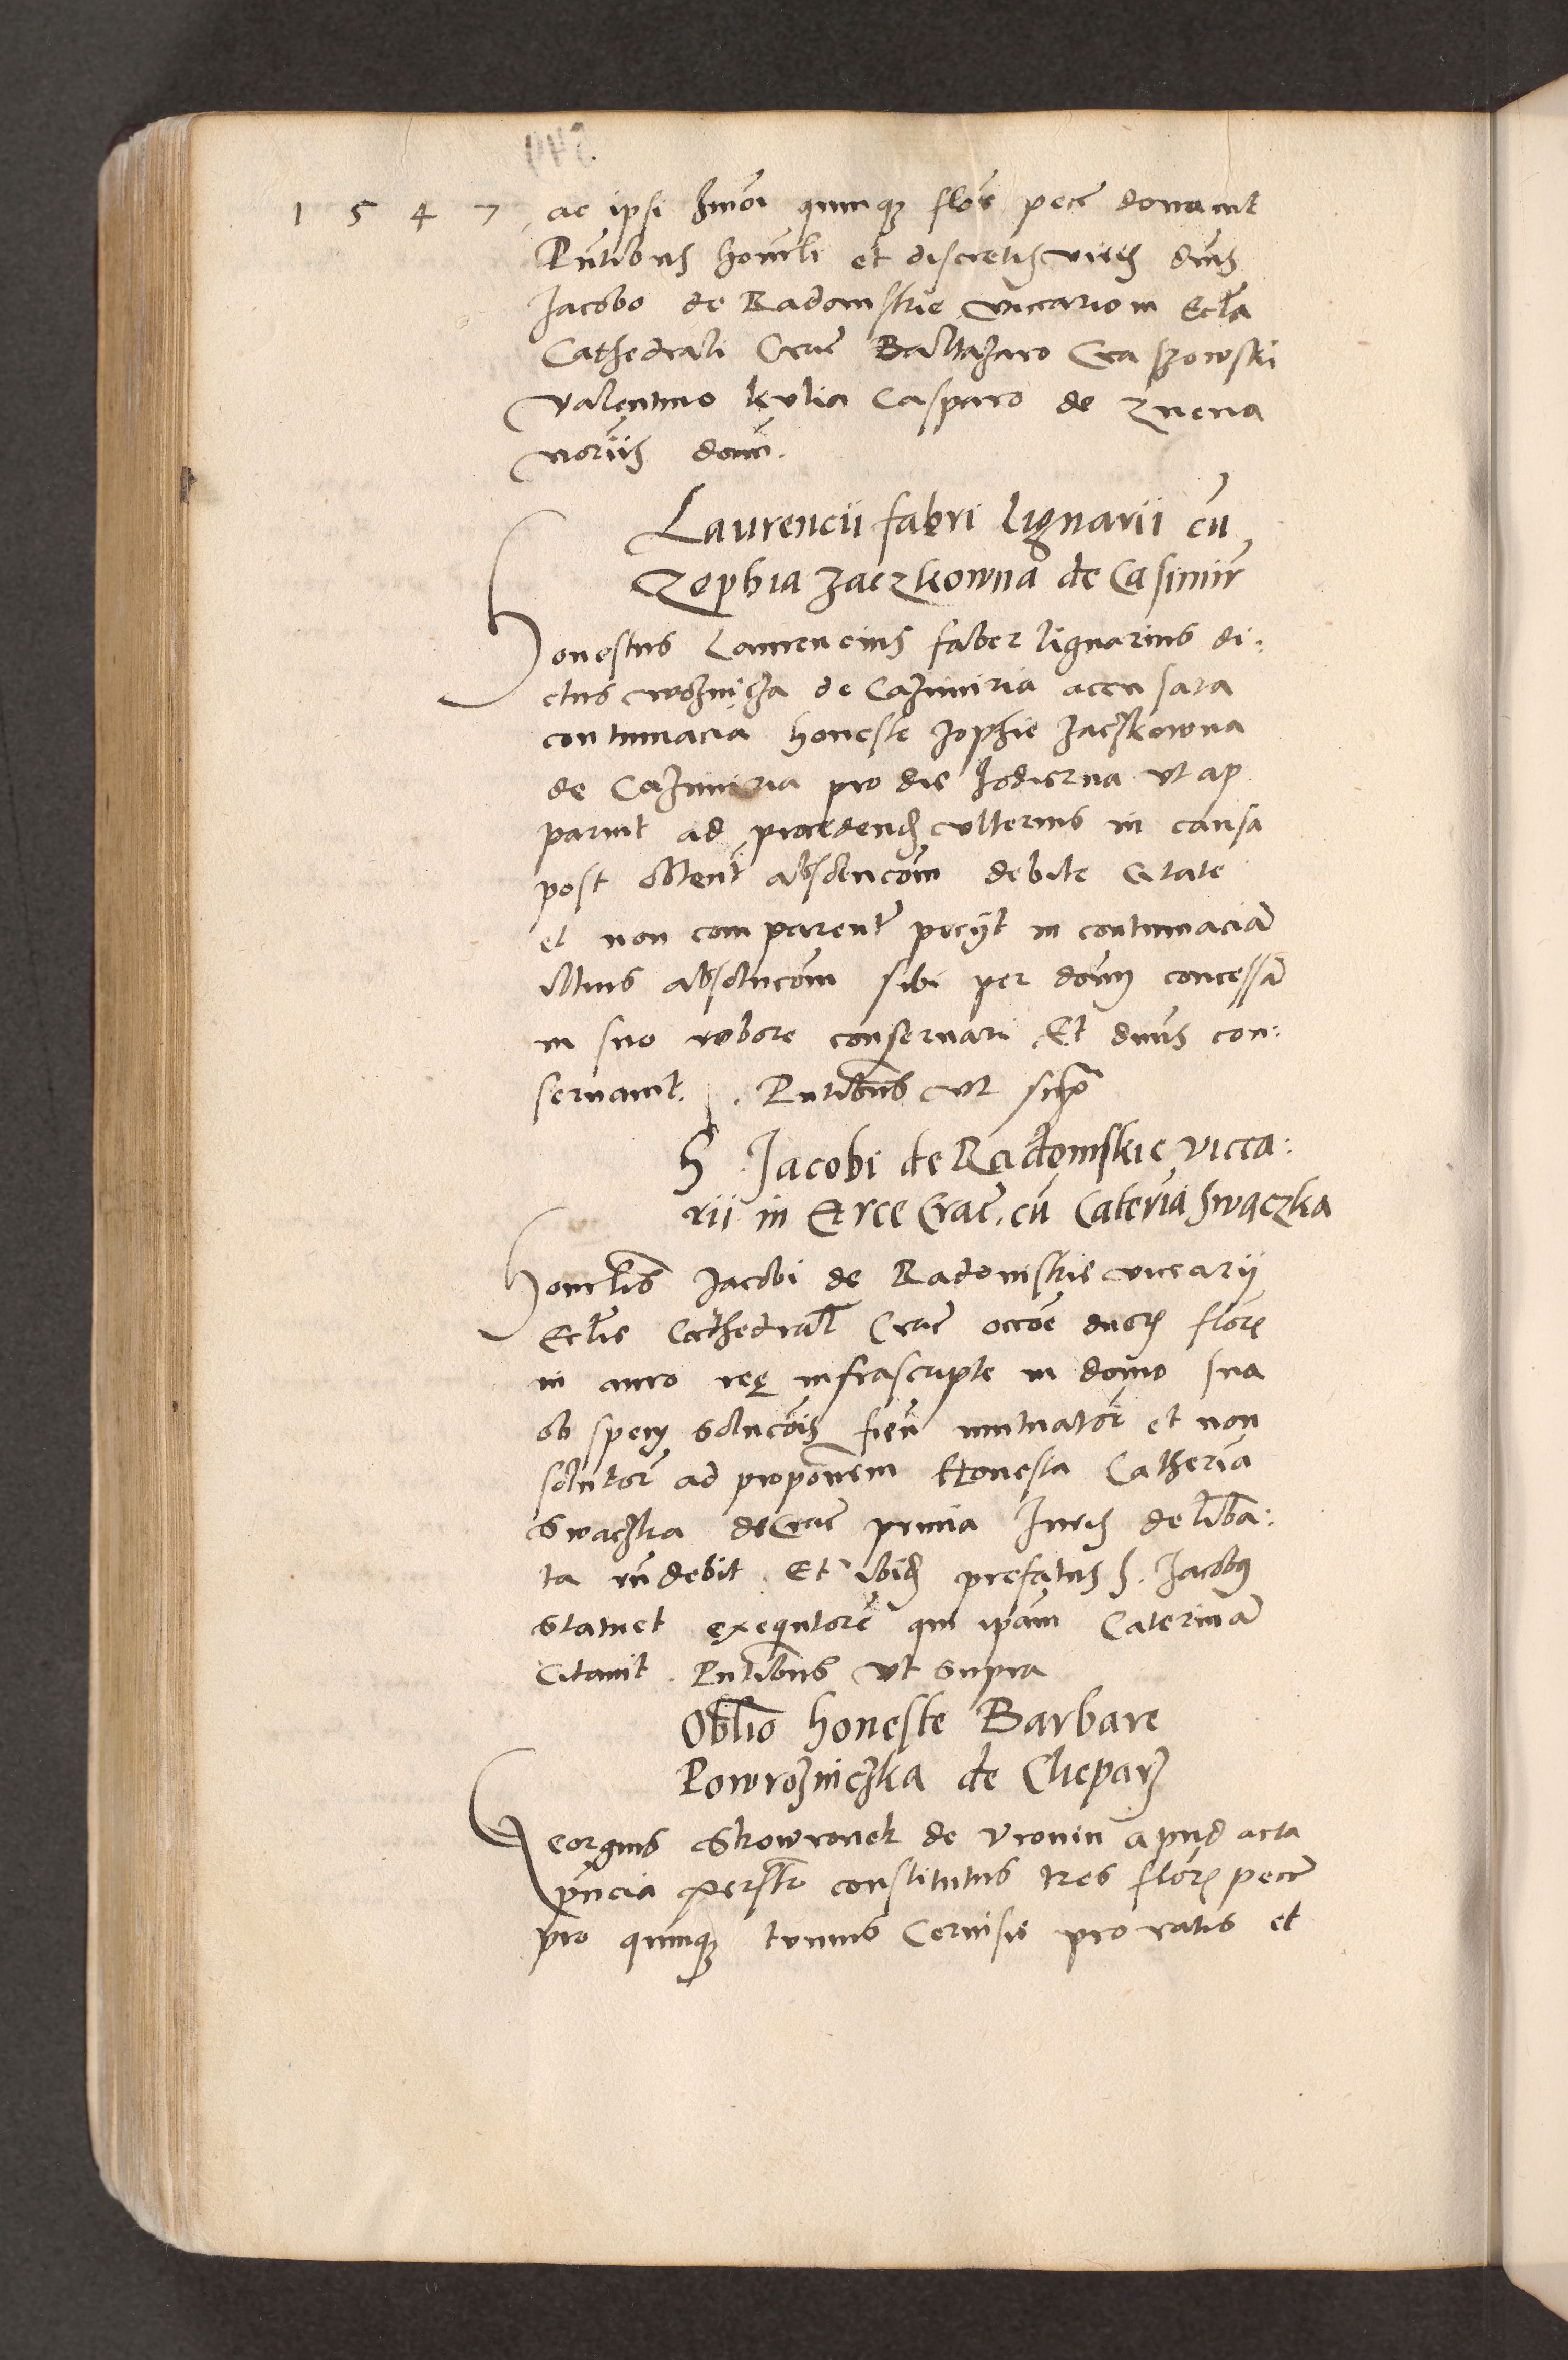 1 5 4 7
ac ipsi Simoni quinqz flor pecc donavit
Pntibus honrli et discretis viris dnis
Jacobo de Radomskie viccario in Eccla
Cathedrali Crac Baltazaro Craszowski
Valentino Kulia Casparo de Znena
noriis domi.
Laurencii fabri lignarii cu
Zophia Zaczkowna de Casimir
Honestus Laurencius faber lignarius di:
ctus woznicza de Cazimiria accusata
contumacia honeste Zophie Zaczkowna
de Cazimiria pro die hodierna ut ap
paruit ad procedend ulterius in causa
post obtent absolucom debite citate
et non comparent peciit in contumacia
illius absolucom sibi per domi concessa
in suo robore conservari Et dnus con:
servavit. Pntibus ut supra
H Jacobi de Radomskie vicca:
rii in Ecce Crac. cu Caterina Swaczka
Honrlis Jacobi de Radomskie viccarii
Ecclie Cathedral Crac occone duor flor
in auro ree infrascripte in domo sua
ob spem solucois fieri mutuator et non
solutor ad proponem Honesta Catherina
Swaczka de Crac primia Juris delibra:
ta rndebit. Et ibid prefatus H. Jacobus
statuet exequtore qui ipam Caterina
Citavit. Pntibus ut supra
Oblio honeste Barbare
Powrozniczka de Cleparz
Georgius Skowronek de Vronin apud acta
pncia perslr constitutus tres flor pecc
pro quinqz tunnis Cervisie pro ratis et